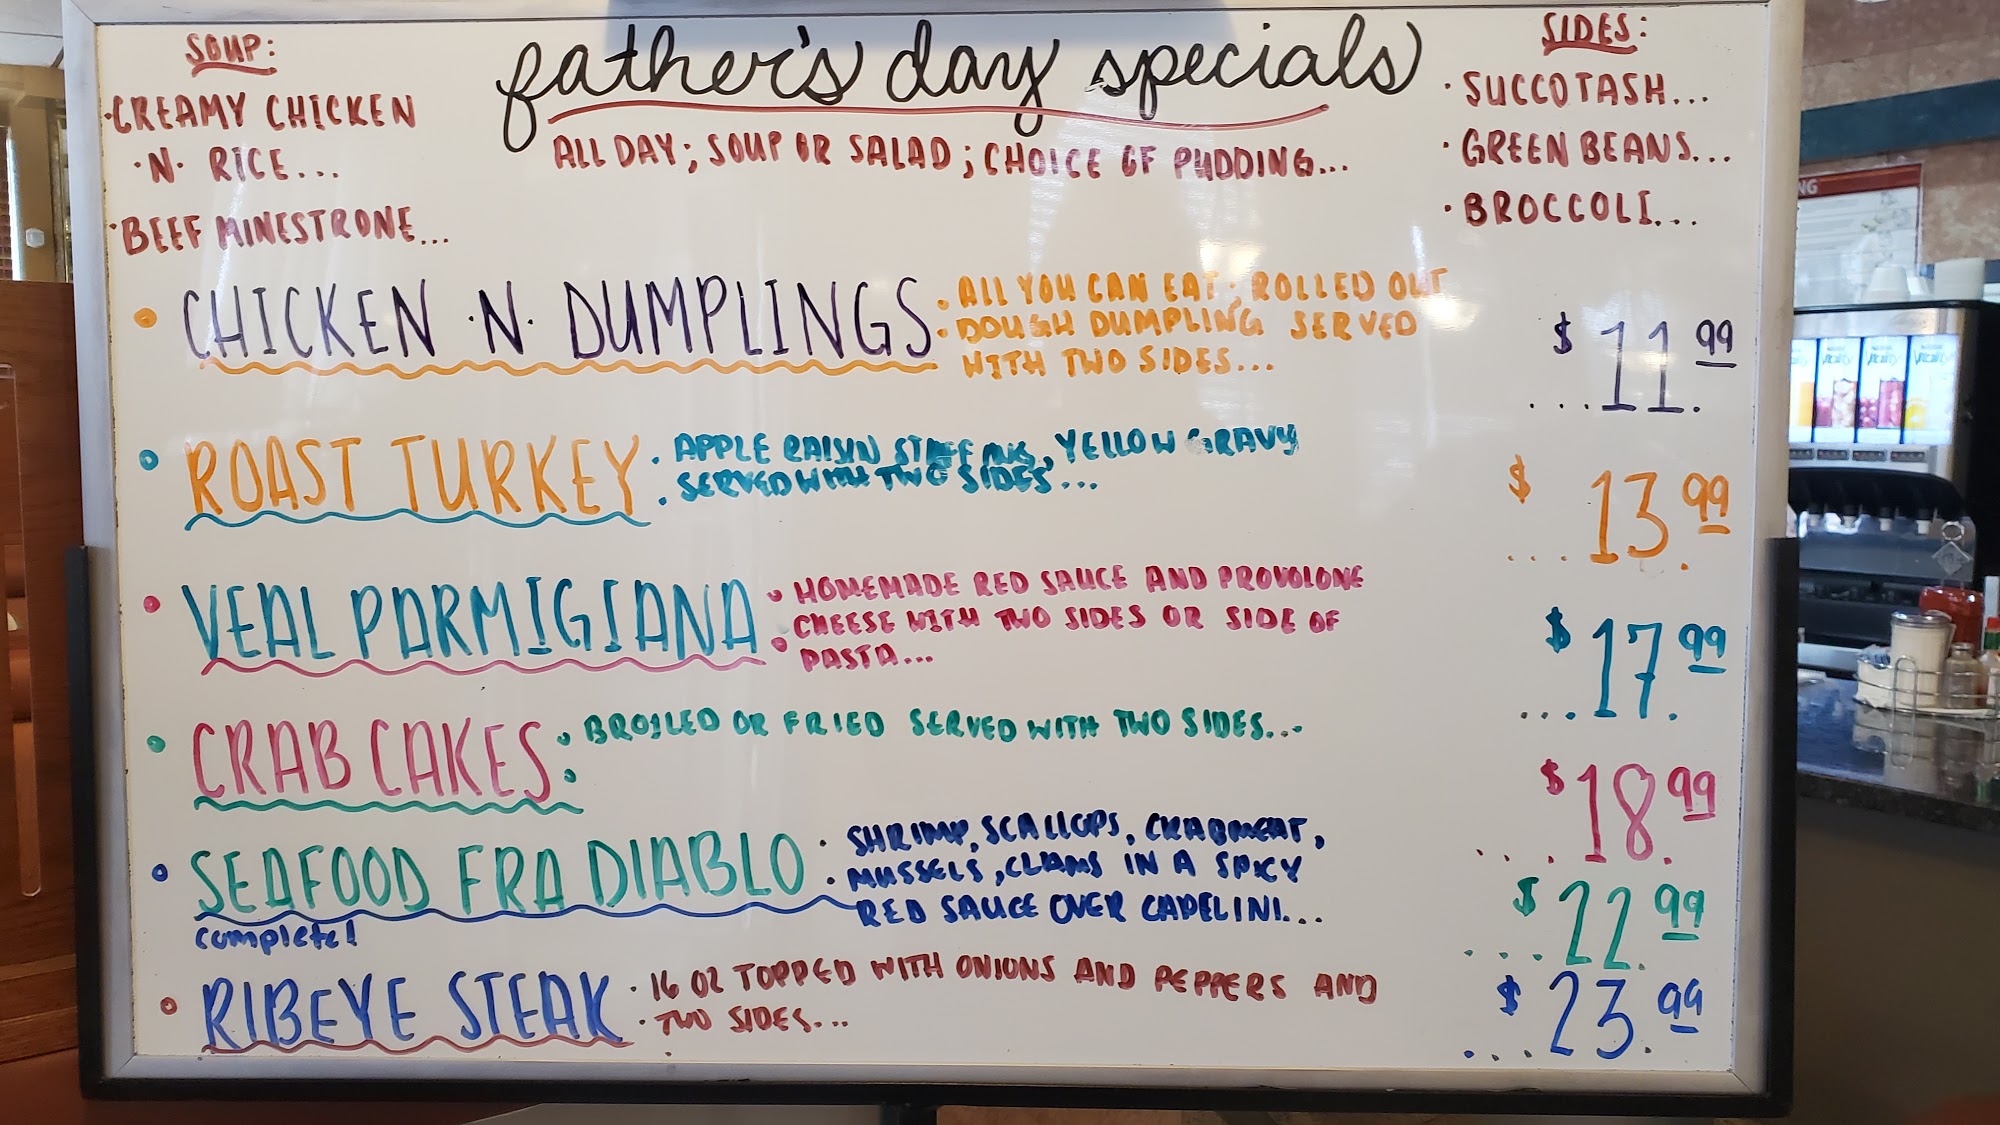 father's day specials
ALL DAY; SOUP OR SALAD; CHOICE OF PUDDING...
SOUP:
·CREAMY CHICKEN
·N· RICE...
·BEEF MINESTRONE...
SIDES:
·SUCCOTASH...
·GREEN BEANS...
·BROCCOLI...
• CHICKEN ·N· DUMPLINGS: ALL YOU CAN EAT; ROLLED OUT
DOUGH DUMPLING SERVED
WITH TWO SIDES...
$ ...11.99
• ROAST TURKEY: APPLE RAISIN STUFFING, YELLOW GRAVY
SERVED WITH TWO SIDES...
$ ...13.99
• VEAL PARMIGIANA: HOMEMADE RED SAUCE AND PROVOLONE
CHEESE WITH TWO SIDES OR SIDE OF
PASTA...
$ ...17.99
• CRAB CAKES: BROILED OR FRIED SERVED WITH TWO SIDES...
$ ...18.99
• SEAFOOD FRA DIABLO: SHRIMP, SCALLOPS, CRABMEAT,
MUSSELS, CLAMS IN A SPICY
RED SAUCE OVER CAPELINI...
complete!
$ ...22.99
• RIBEYE STEAK: 16 OZ TOPPED WITH ONIONS AND PEPPERS AND
TWO SIDES...
$ ...23.99